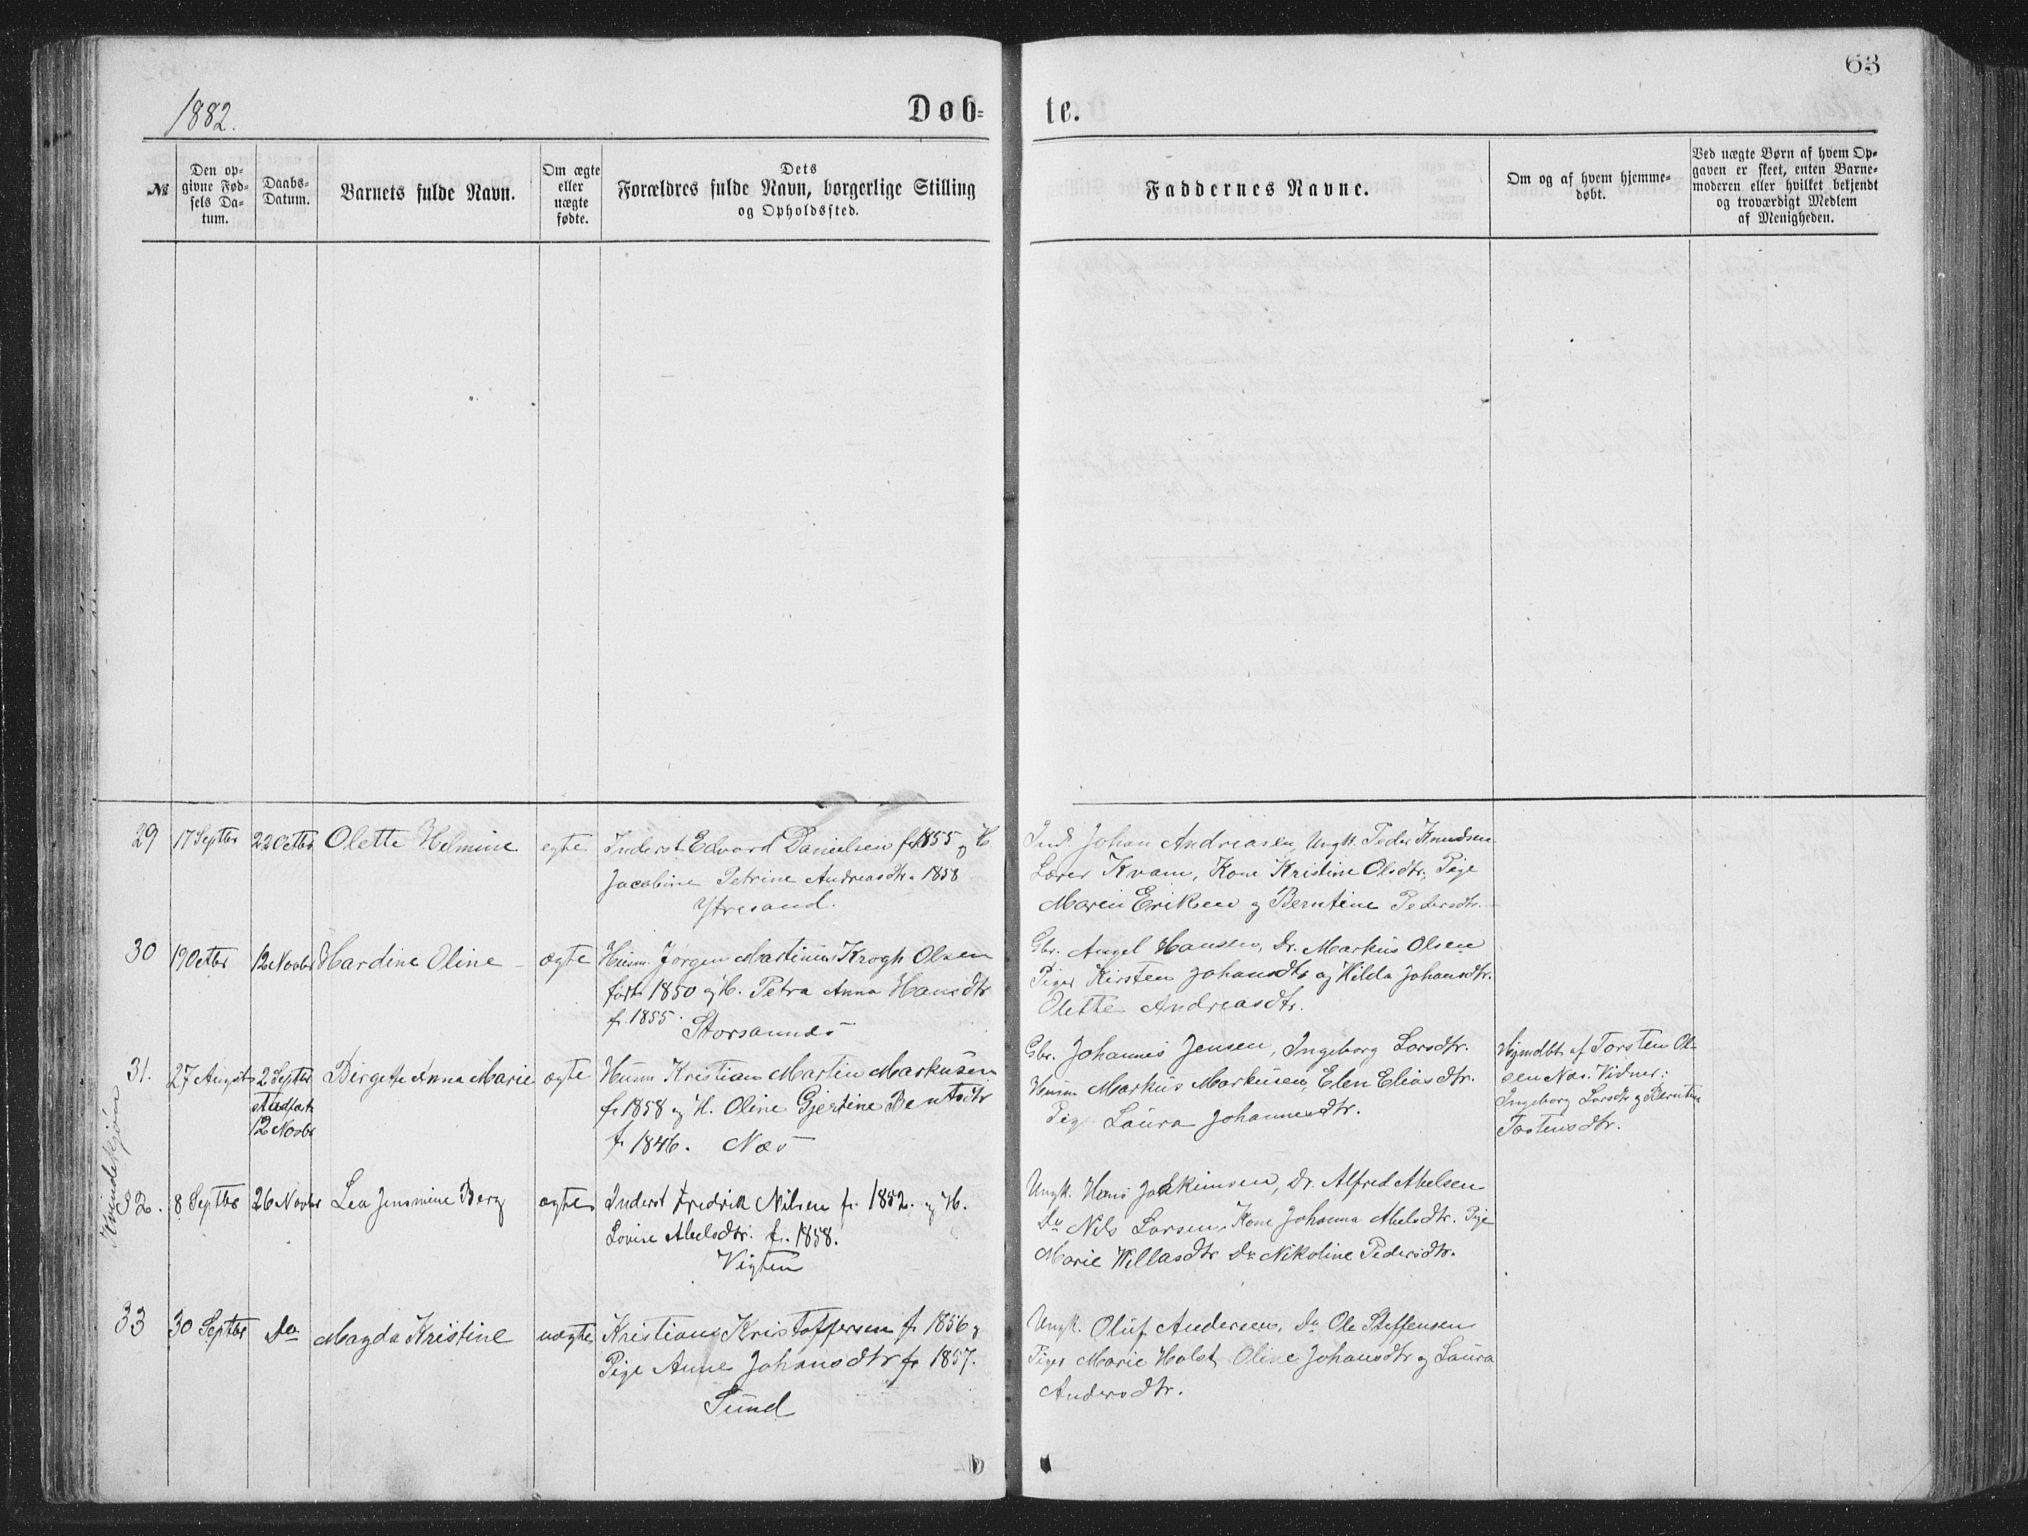 63
1882.
Døb-
te.
№
Den op-
givne Fød-
sels Da-
tum.
Daabs-
Datum.
Barnets fulde Navn.
Om ægte
eller
uægte
fødte.
Dets
Forældres fulde Navn, borgerlige Stilling
og Opholdssted.
Faddernes Navne.
Om og af hvem hjemme-
døbt.
Ved uægte Børn af hvem Op-
gaven er skeet, enten Barne-
moderen eller hvilket bekjendt
og troværdigt Medlem
af Menigheden.
Kvindekjøn
29
17 Septbr
22 Octbr
Olette Helmine
egte
Inderst Edvard Danielsen f. 1855 og H.
Jacobine Petrine Andreasdtr. 1858
Ytresand.
Ind. Johan Andreasen, Ungk. Peder Knudsen
Lærer Kvam, Kone Kristine Olsdtr, Pige
Maren Eriksen og Berntine Pedersdtr.
30
19 Octbr
12 Novbr
Hardine Oline
ægte
Husm. Jørgen Martinus Krogh Olsen
født 1850 og H. Petra Anna Hansdtr
f. 1855.
Storsandnes
Gbr. Angel Hansen, Do. Markus Olsen
Piger Kirsten Johansdtr og Hilda Johansdtr.
Olette Andreasdtr.
31.
27 August
2 Septbr
stadfæst
12 Novbr
Birgette Anna Marie
ægte
Husm Kristian Martin Markusen
f. 1858 og H. Oline Gjertine Bentsdtr
f. 1846. Næs
Gbr. Johannes Jensen, Ingeborg Larsdtr.
Husm Markus Markusen, Elen Eliasdtr.
Pige Laura Johannesdtr.
Hjmdbt af Torsten Ol-
sen Næs. Vidner:
Ingeborg Larsdtr og Berntine
Torstensdtr.
32.
8 Septbr
26 Novbr
Lea Jensmine Berg
ægte
Inderst Fredrik Nilsen f. 1852. og H.
Lovise Abelsdtr. f. 1858.
Vigten
Ungk. Hans Joakimsen, Do. Alfred Abelsen
Do Nils Larsen, Kone Johanna Abelsdtr. Pige
Marie Willasdtr Do Nikoline Pedersdtr.
33
30 Septbr
Do
Magda Kristine
uægte
Kristians Kristoffersen f. 1856 og
Pige Anne Johansdtr f. 1857.
Sund
Ungk. Oluf Andersen, Do Ole Steffensen
Piger Marie Holst, Oline Johansdtr og Laura
Andersdtr.